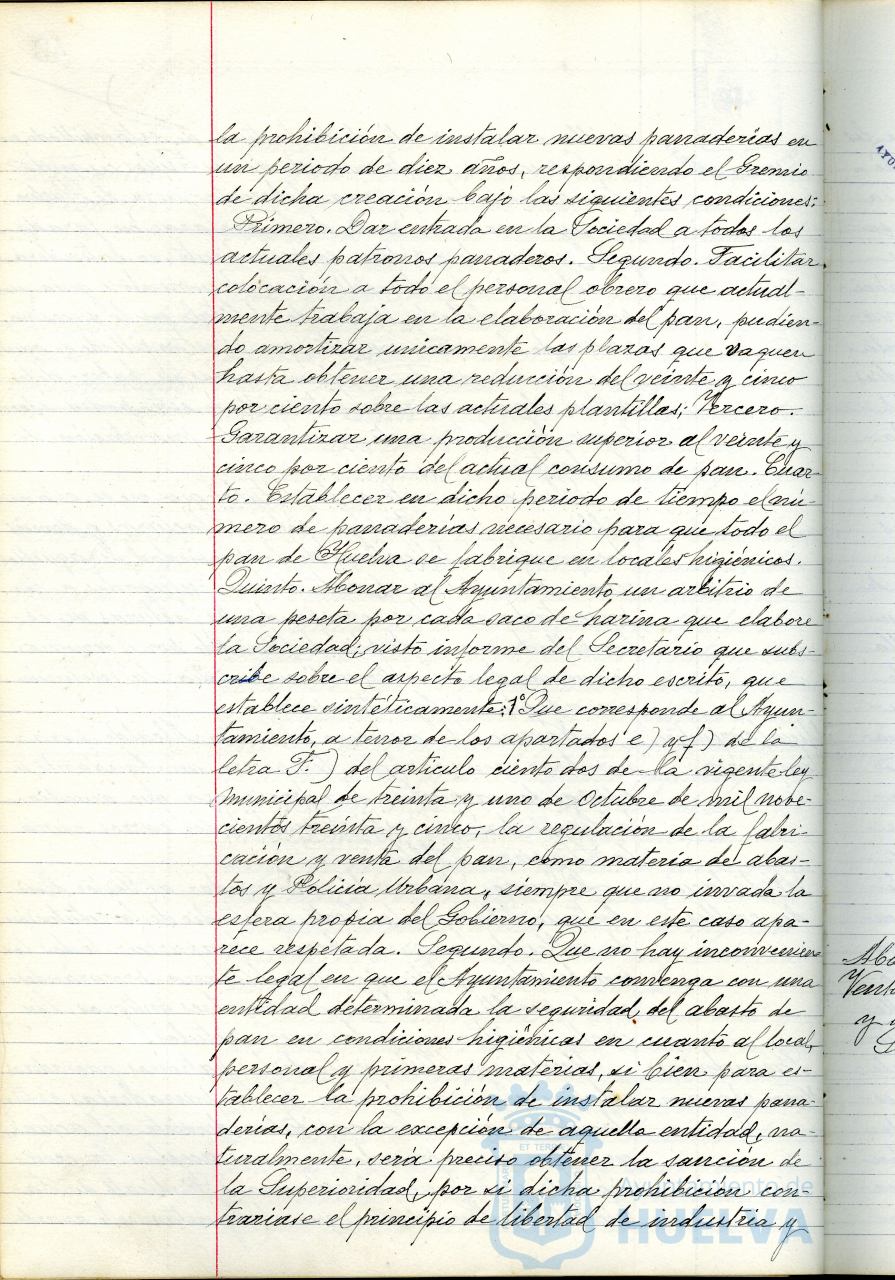 la prohibición de instalar nuevas panaderías en
un periodo de diez años, respondiendo el Gremio
de dicha creación bajo las siguientes condiciones:
Primero. Dar entrada en la Sociedad a todos los
actuales patronos panaderos. Segundo. Facilitar
colocación a todo el personal obrero que actual-
mente trabaja en la elaboración del pan, pudien-
do amortizar unicamente las plazas que vaquen
hasta obtener una reducción del veinte y cinco
por ciento sobre las actuales plantillas; Tercero.
Garantizar una producción superior al veinte y
cinco por ciento del actual consumo de pan. Cuar-
to. Establecer en dicho periodo de tiempo el nú-
mero de panaderías necesario para que todo el
pan de Huelva se fabrique en locales higiénicos.
Quinto. Abonar al Ayuntamiento un arbitrio de
una peseta por cada saco de harina que elabore
la Sociedad; visto informe del Secretario que subs-
cribe sobre el aspecto legal de dicho escrito, que
establece sintéticamente: 1º Que corresponde al Ayun-
tamiento, a tenor de los apartados e) y f) de la
letra F.) del articulo ciento dos de la vigente ley
municipal de treinta y uno de Octubre de mil nove-
cientos treinta y cinco, la regulación de la fabri-
cación y venta del pan, como materia de abas-
tos y Policía Urbana, siempre que no invada la
esfera propia del Gobierno, que en este caso apa-
rece respetada. Segundo. Que no hay inconvenien-
te legal en que el Ayuntamiento convenga con una
entidad determinada la seguridad del abasto de
pan en condiciones higiénicas en cuanto al local,
personal y primeras materias, si bien para es-
tablecer la prohibición de instalar nuevas pana-
derías, con la excepción de aquella entidad, na-
turalmente, será preciso obtener la sanción de
la Superioridad, por si dicha prohibición con-
trariase el principio de libertad de industria y
Ayuntamiento de
HUELVA